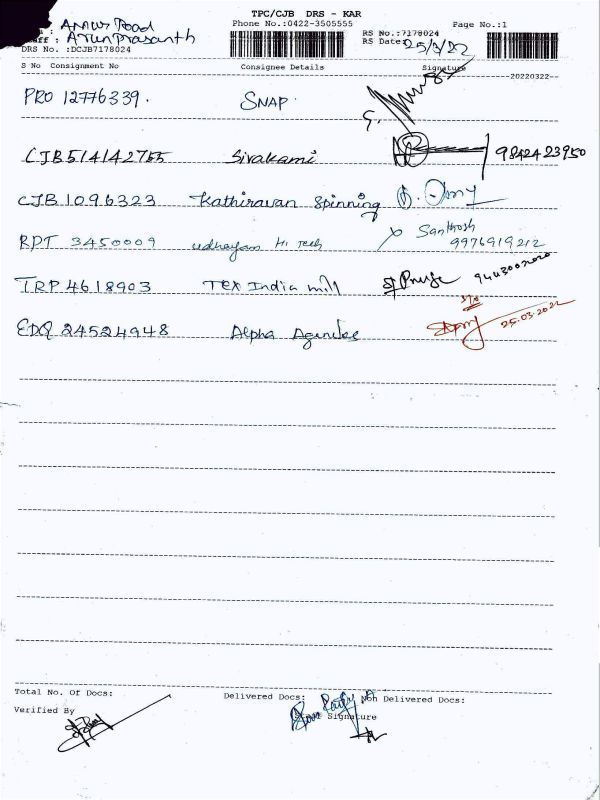 TPC/CJB DRS - KAR
Phone No.:0422-3505555 Page No.:1
: Road
aff : Arun Prasanth RS No.:7178024
DRS No. :DCJB7178024 RS Date: 25/3/22
S No Consignment No Consignee Details Signature
20220322--
PRO 12776339. SNAP.
CJB514142755 Sivakami 9842423950
CJB 1096323 Kathiravan Spinning
RPT 3450009 udhayam Hi Tech Santhosh
9976919212
TRP 4618903 Tex India mill
EDQ 24524948 Alpha Agencies 25.03.2022
Total No. Of Docs: Delivered Docs: Non Delivered Docs:
Verified By Signature